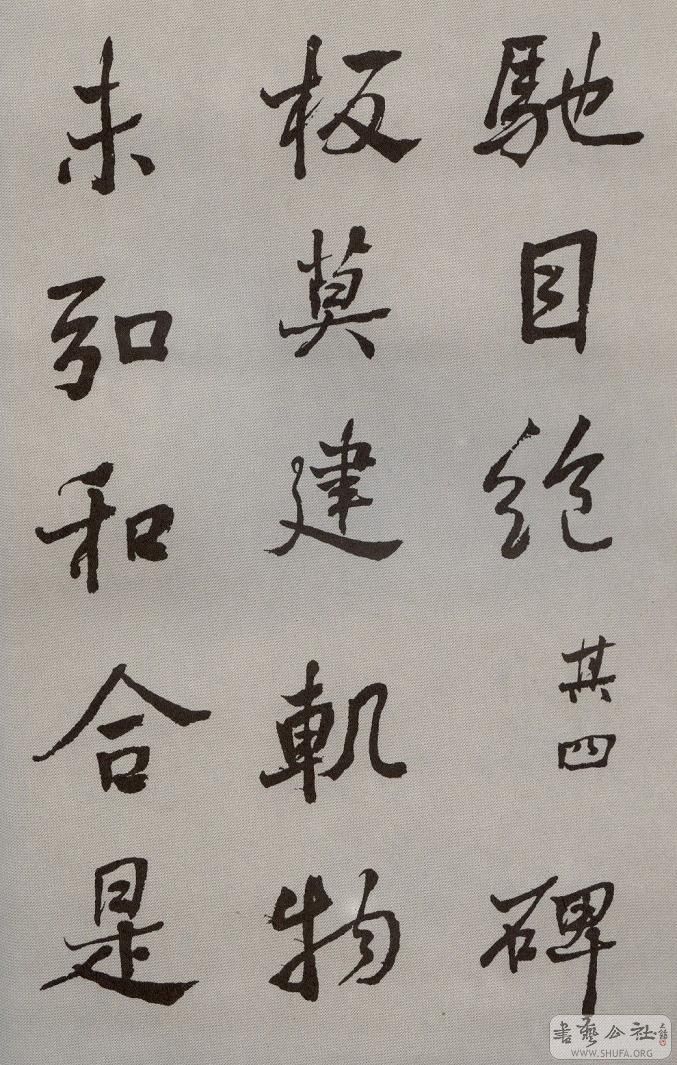 馳目絶其四碑
板莫建軏物
未弘和合是
書藝公社
WWW.SHUFA.ORG